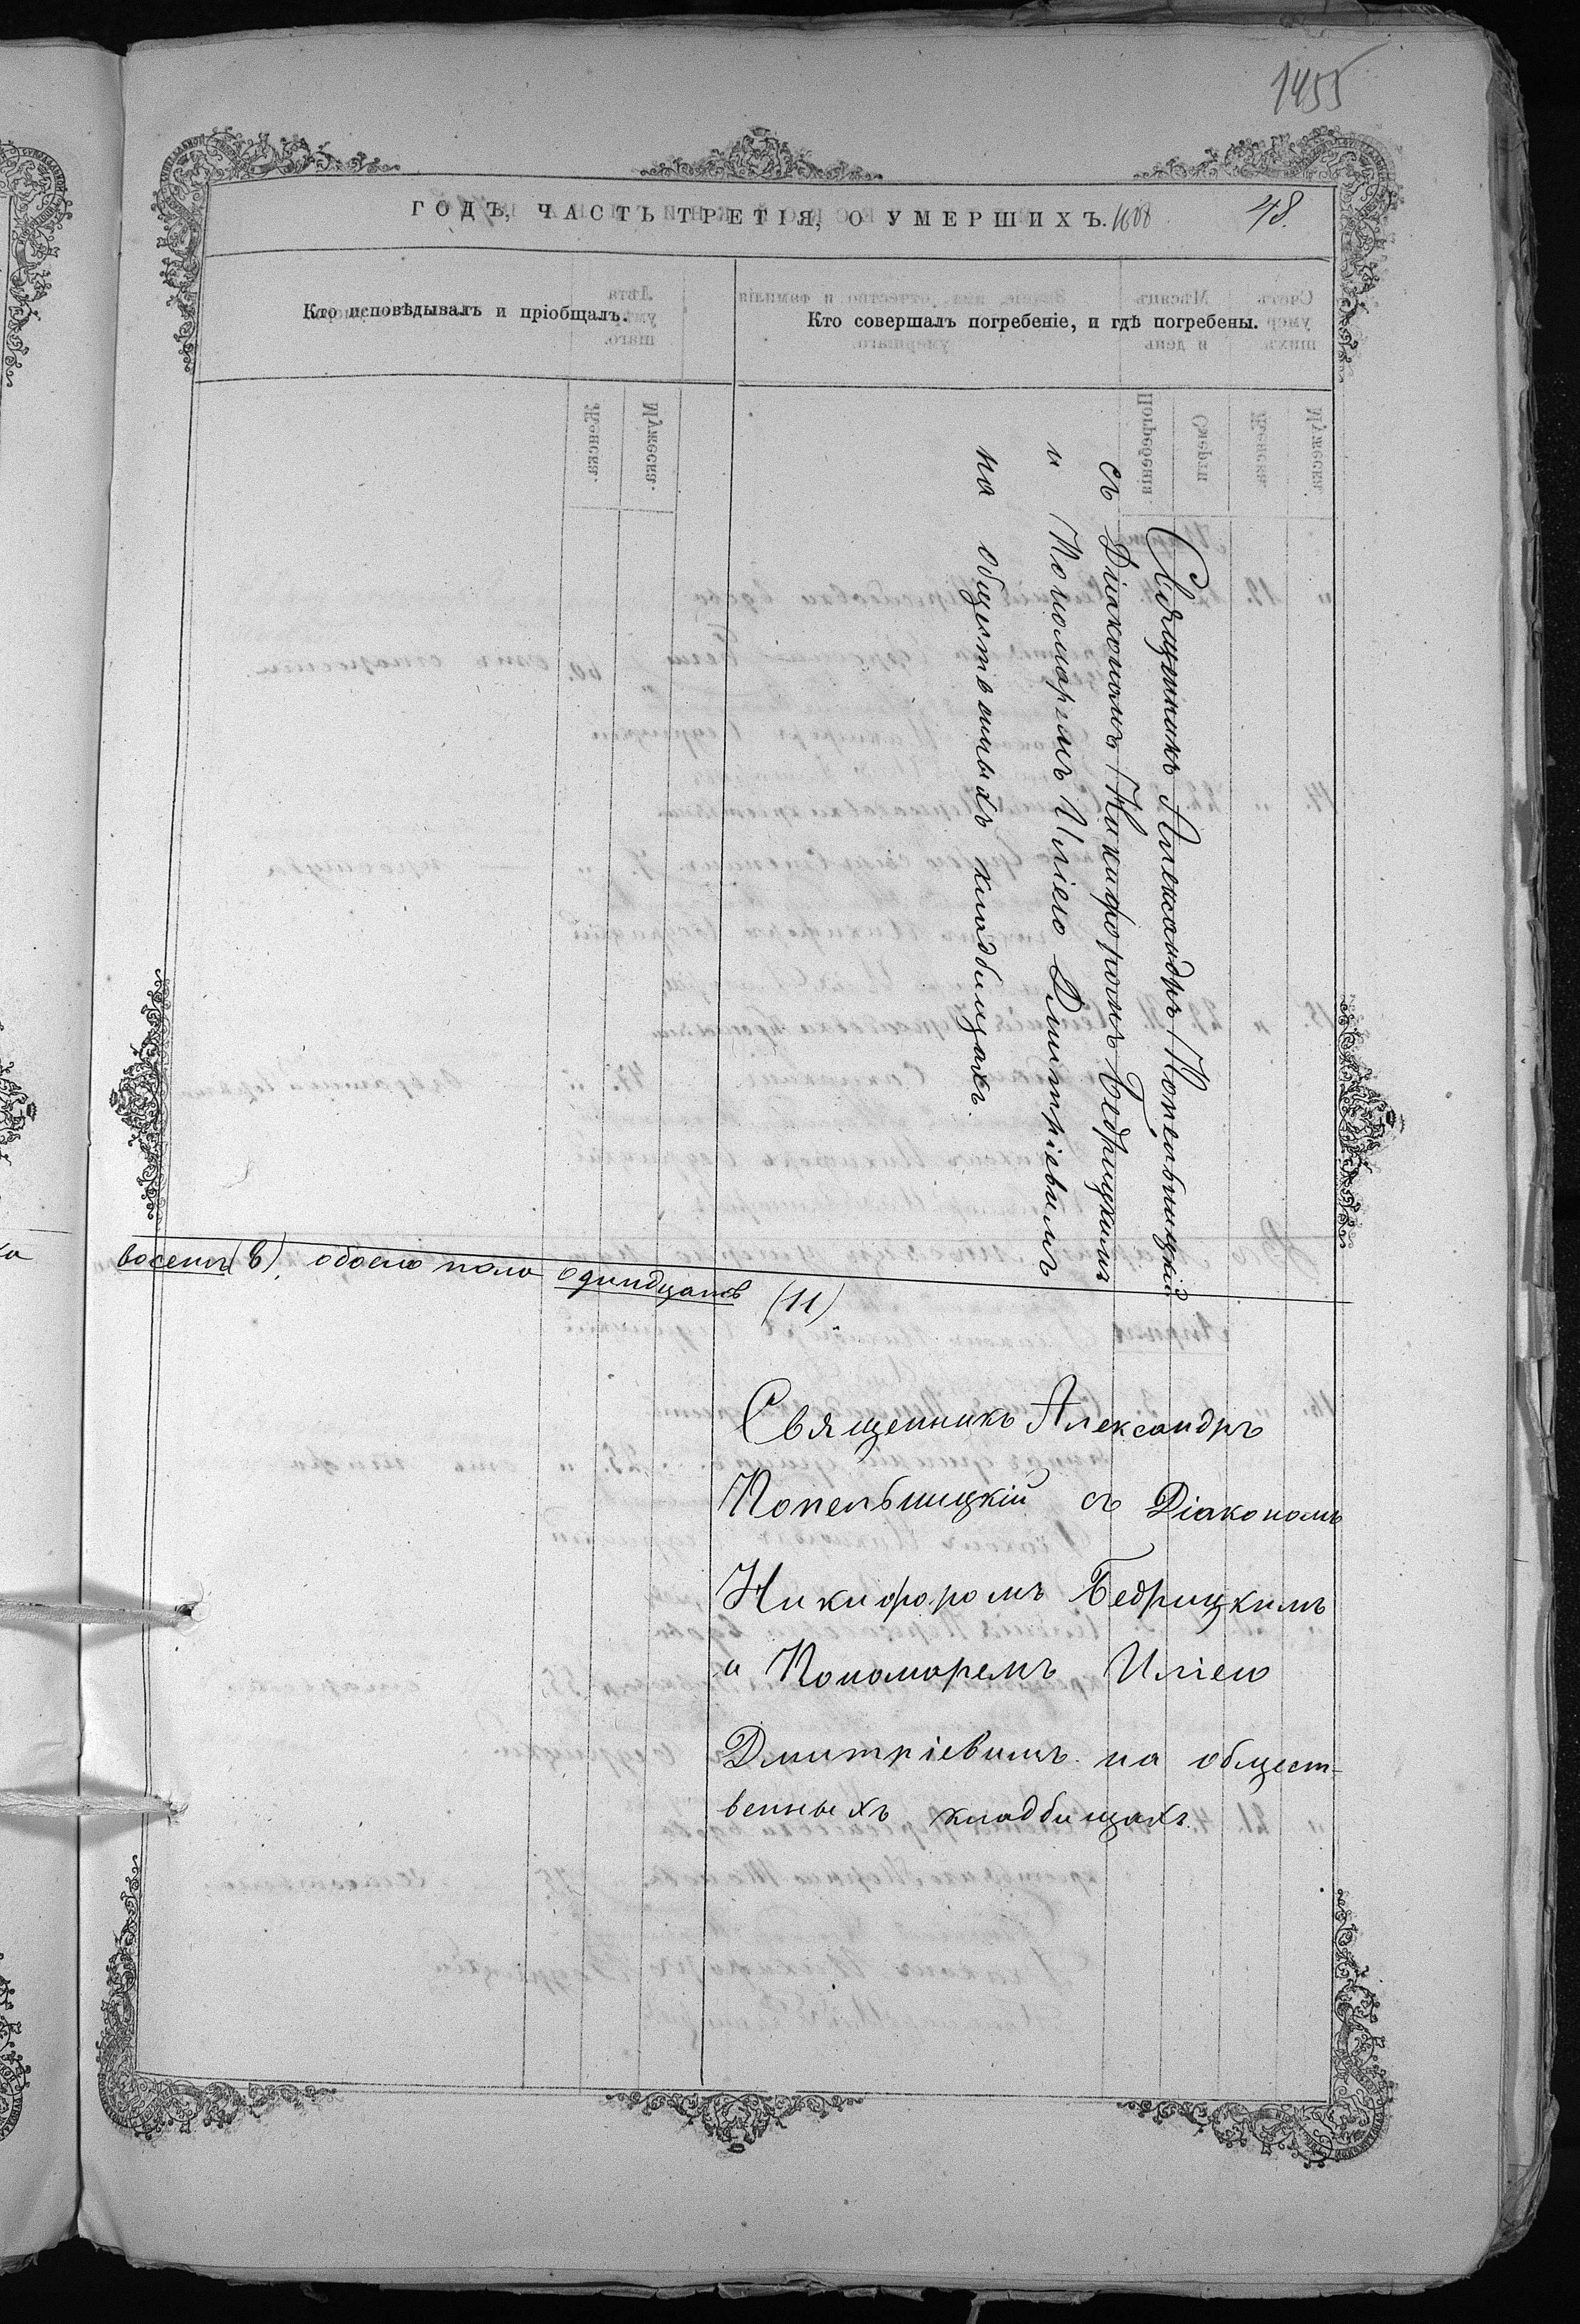 1455
ГОДЪ, ЧАСТЬ ТРЕТІЯ, О УМЕРШИХЪ.
48.
Кто исповѣдывалъ и пріобщалъ.
Кто совершалъ погребеніе, и гдѣ погребены.
Священникъ Александръ Попельницкій
съ Діакономъ Никифоромъ Бедрицкимъ
и Пономаремъ Иліею Дмитріевымъ
на общественныхъ кладбищахъ.
восемь (8), обоего пола одиндцать (11)
Священникъ Александръ
Попельницкій съ Діакономъ
Никифоромъ Бедрицкимъ
и Пономаремъ Иліею
Дмитріевымъ на общест-
венныхъ кладбищахъ.